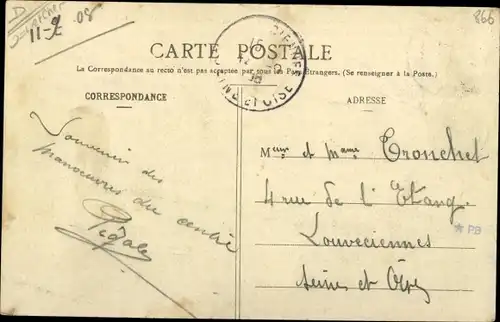 D
11-2 08
866
CARTE POSTALE
La Correspondance au recto n'est pas acceptée par tous les Pays Étrangers. (Se renseigner à la Poste.)
CORRESPONDANCE
ADRESSE
SEINE ET OISE
Souvenir des
manœuvres du centre
Meur et Mame Tronchet
4 rue de l'Etang
Louveciennes
Seine et Oise
* PB